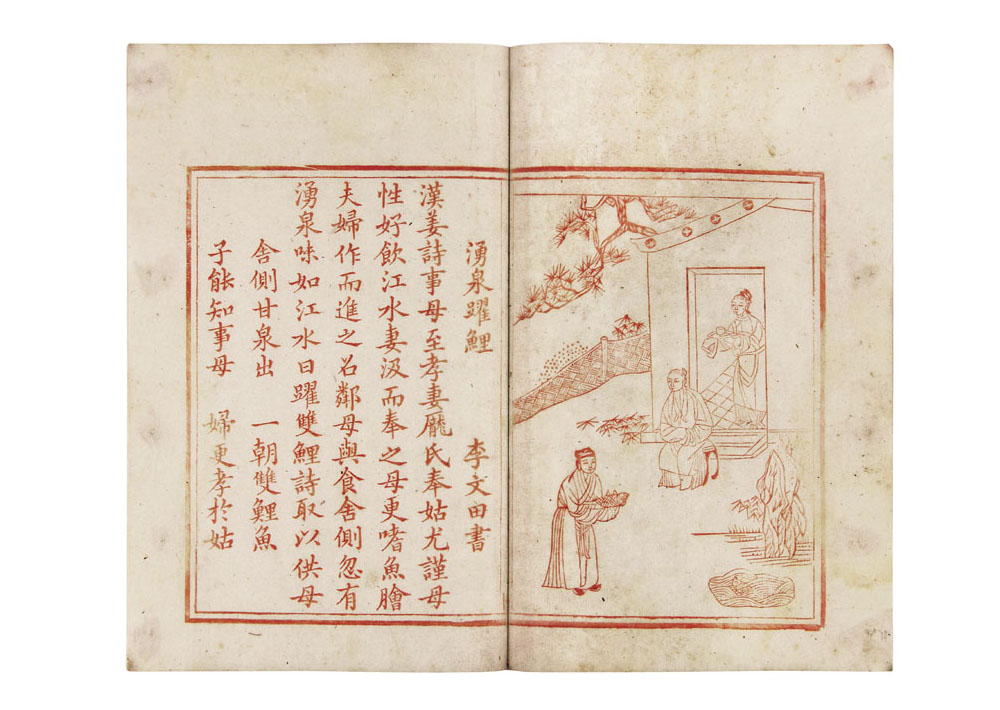 湧泉躍鯉　李文田書
漢姜詩事母至孝妻龐氏奉姑尤謹母
性好飲江水妻汲而奉之母更嗜魚膾
夫婦作而進之召鄰母與食舍側忽有
湧泉味如江水日躍雙鯉詩取以供母
舍側甘泉出　一朝雙鯉魚
子能知事母　婦更孝於姑